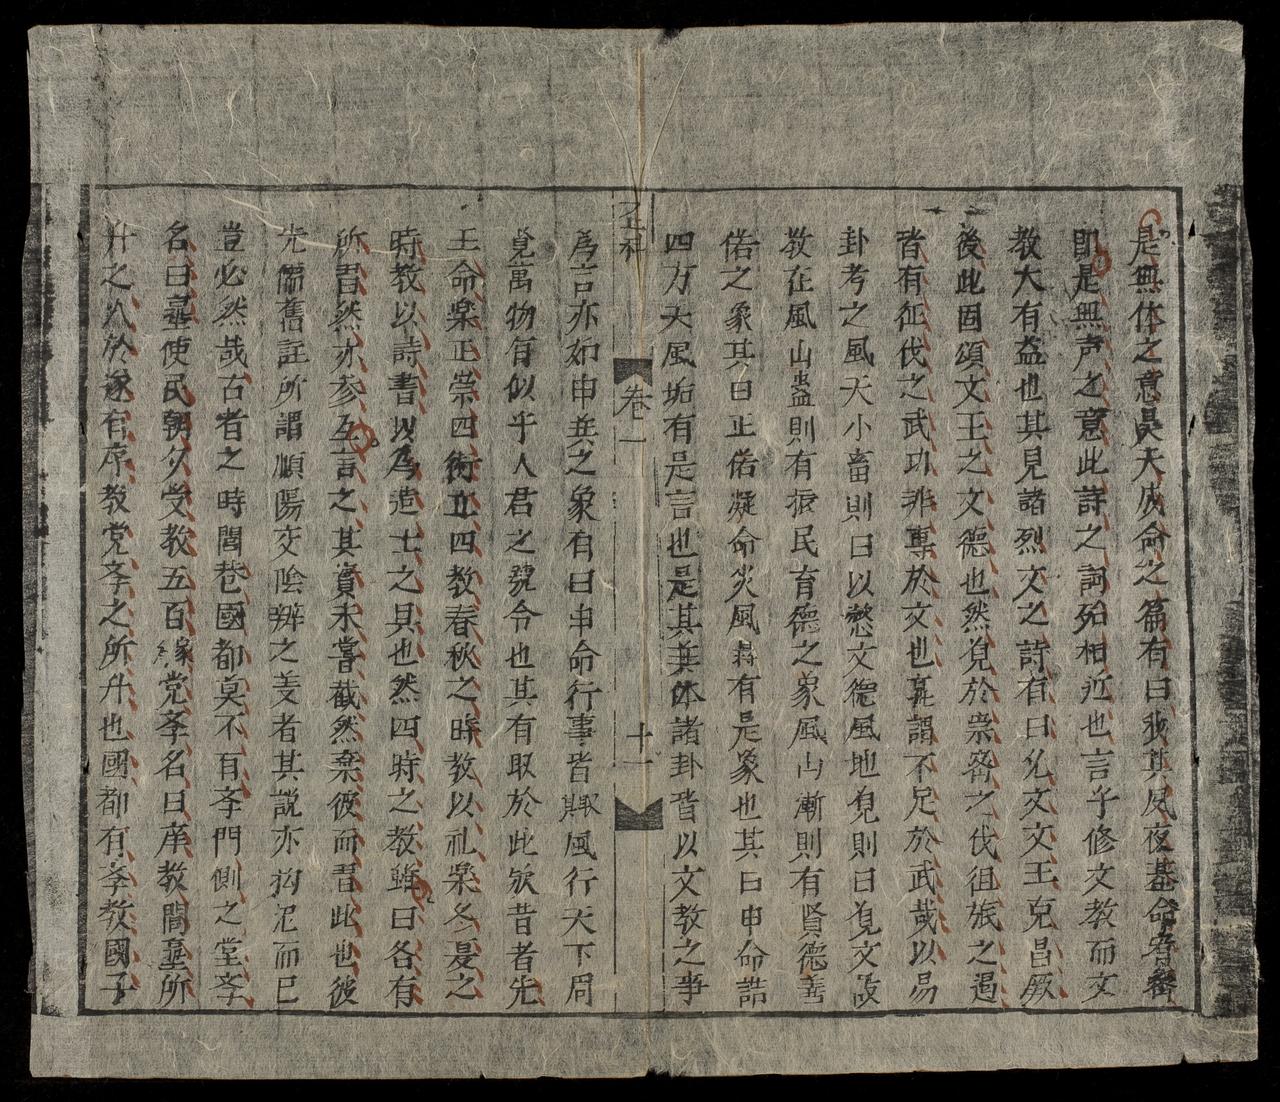 是無体之意昊天成命之篇有曰我其夙夜基命宥密
即是無声之意此詩之詞殆相近也言乎修文教而文
教大有益也其見諸烈文之詩有曰允文文王克昌厥
後此固頌文王之文德也然見於崇密之伐徂旅之遏
皆有征伐之武功非專於文也孰謂不足於武哉以易
卦考之風天小畜則曰以懿文德風地見則曰見文設
教在風山蠱則有振民育德之象風山漸則有賢德善
俗之象其曰正俗凝命火風鼎有是象也其曰申命誥
四方天風姤有是言也是其兼体諸卦皆以文教之事
卷一
十一
為言亦如申巽之象有曰申命行事皆取風行天下周
覓萬物有似乎人君之號令也其有取於此欤昔者先
王命樂正崇四術立四教春秋之時教以礼樂冬夏之
時教以詩書以為造士之具也然四時之教雖曰各有
所習然亦參互言之其實未嘗截然棄彼而習此也彼
先儒舊註所謂順陽交陰辨之美者其説亦拘泥而已
豈必然哉古者之時閭巷國都莫不有斈門側之堂斈
名曰塾使民朝夕受教五百家為党斈名曰庠教閭塾所
升之人於遂有序教党斈之所升也國都有斈教國子